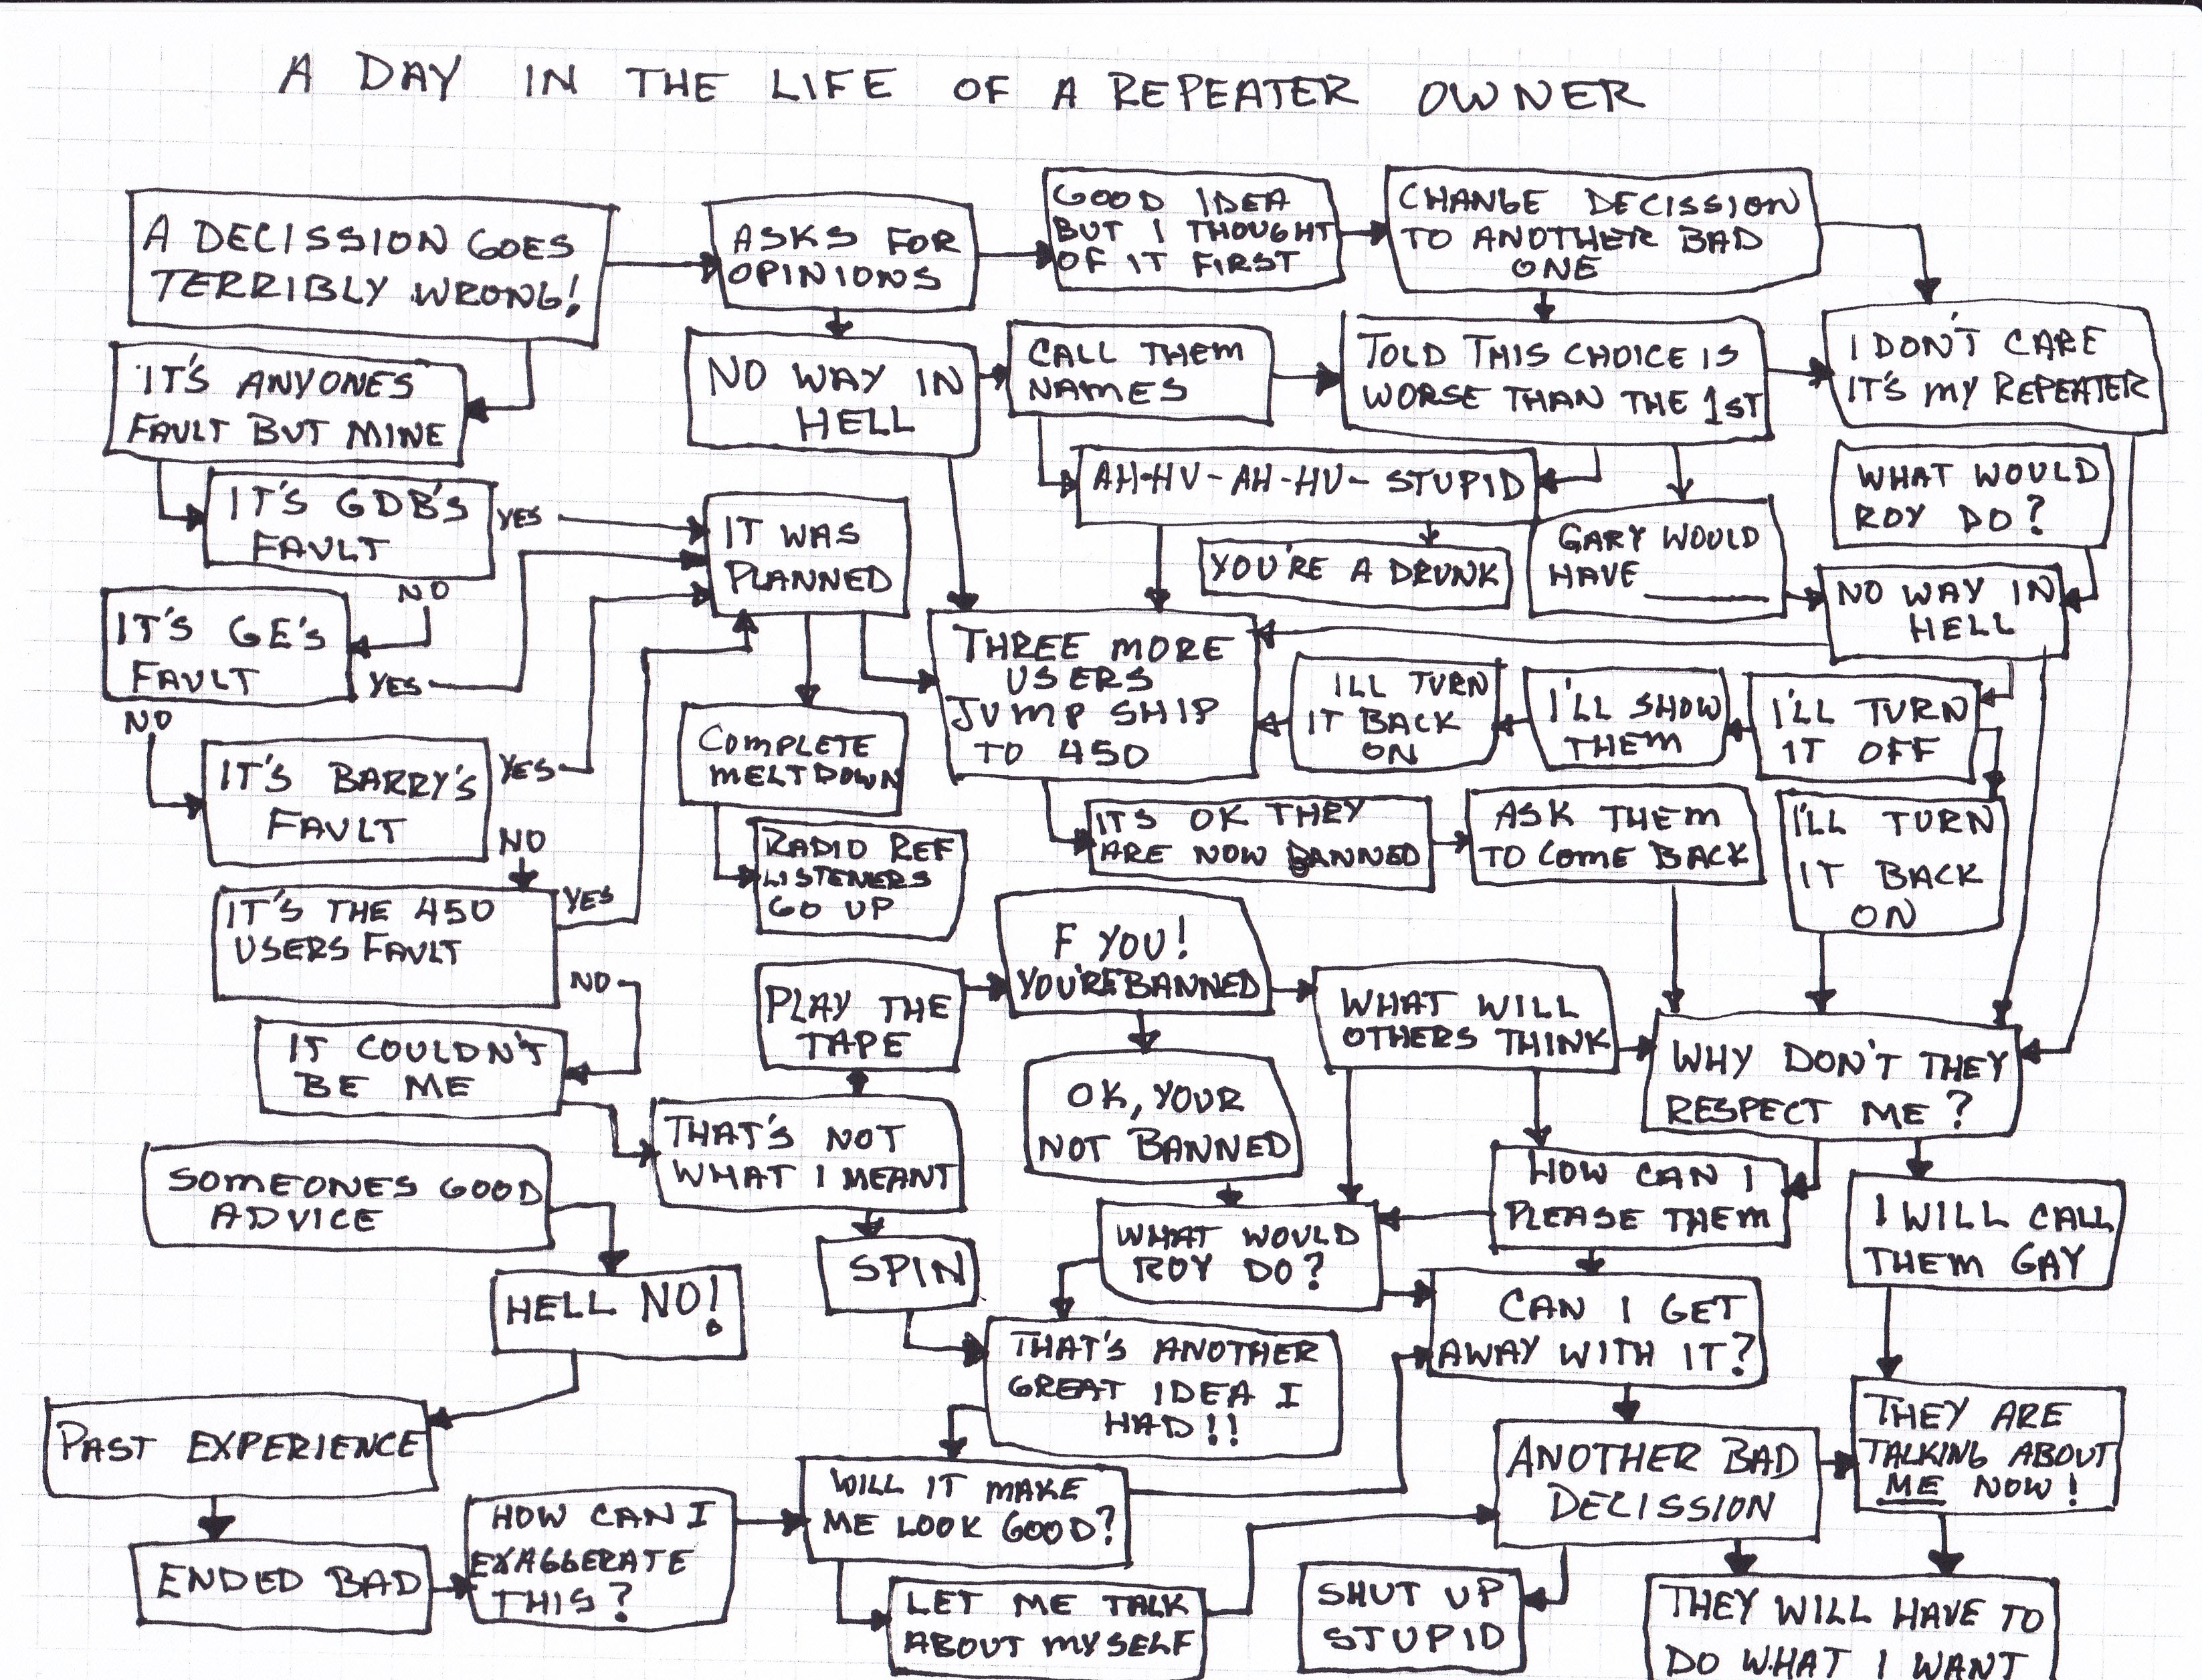 A DAY IN THE LIFE OF A REPEATER OWNER
A DECISSION GOES
TERRIBLY WRONG!
ASKS FOR
OPINIONS
GOOD IDEA
BUT I THOUGHT
OF IT FIRST
CHANGE DECISSION
TO ANOTHER BAD
ONE
IT'S ANYONES
FAULT BUT MINE
NO WAY IN
HELL
CALL THEM
NAMES
TOLD THIS CHOICE IS
WORSE THAN THE 1ST
I DON'T CARE
IT'S MY REPEATER
IT'S GDB'S
FAULT
YES
NO
IT WAS
PLANNED
AH-HU-AH-HU-STUPID
YOU'RE A DRUNK
GARY WOULD
HAVE ______
WHAT WOULD
ROY DO?
NO WAY IN
HELL
IT'S GE'S
FAULT
YES
NO
THREE MORE
USERS
JUMP SHIP
TO 450
ILL TURN
IT BACK
ON
I'LL SHOW
THEM
I'LL TURN
IT OFF
IT'S BARRY'S
FAULT
YES
NO
COMPLETE
MELTDOWN
ITS OK THEY
ARE NOW BANNED
ASK THEM
TO COME BACK
I'LL TURN
IT BACK
ON
RADIO REF
LISTENERS
GO UP
IT'S THE 450
USERS FAULT
YES
NO
F YOU!
YOU'RE BANNED
PLAY THE
TAPE
WHAT WILL
OTHERS THINK
IT COULDN'T
BE ME
WHY DON'T THEY
RESPECT ME?
OK, YOUR
NOT BANNED
THAT'S NOT
WHAT I MEANT
SOMEONES GOOD
ADVICE
HOW CAN I
PLEASE THEM
I WILL CALL
THEM GAY
SPIN
WHAT WOULD
ROY DO?
HELL NO!
CAN I GET
AWAY WITH IT?
THAT'S ANOTHER
GREAT IDEA I
HAD!!
PAST EXPERIENCE
ANOTHER BAD
DECISSION
THEY ARE
TALKING ABOUT
ME NOW!
WILL IT MAKE
ME LOOK GOOD?
HOW CAN I
EXAGGERATE
THIS?
ENDED BAD
LET ME TALK
ABOUT MYSELF
SHUT UP
STUPID
THEY WILL HAVE TO
DO WHAT I WANT